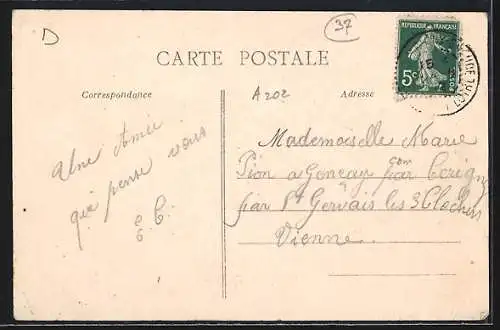 D
37
CARTE POSTALE
REPUBLIQUE FRANÇAISE
5c
Correspondance
A202
Adresse
Une Amie
qui pense vous
Mademoiselle Marie
Pion a
par
par St Gervais les 3 Clochers
Vienne